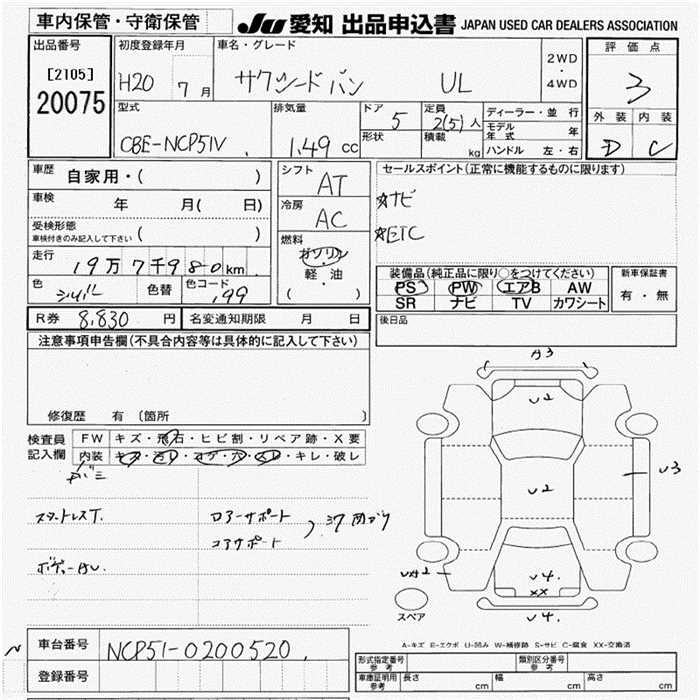 車内保管・守衛保管
Ju 愛知 出品申込書 JAPAN USED CAR DEALERS ASSOCIATION
出品番号
[2105]
20075
初度登録年月
H20 7月
車名・グレード
サクシードバン UL
2WD
・
4WD
評価点
3
外装 内装
D C
型式
CBE-NCP51V
排気量
1.49 cc
ドア
5
形状
定員
2(5)人
積載
kg
ディーラー・並行
モデル年式 年
ハンドル 左・右
車歴 自家用・( )
車検 年 月( 日)
受検形態
車検付きのみ記入して下さい ( )
走行
19万7千980km
色 シルバー 色替 色コード 199
シフト
AT
冷房
AC
燃料
ガソリン
・
軽・油
( )
セールスポイント(正常に機能するものに限ります)
☆ナビ
☆ETC
装備品(純正品に限り○をつけてください)
PS PW エアB AW
SR ナビ TV カワシート
新車保証書
有・無
R券 8,830円 名変通知期限 月 日
後日品
注意事項申告欄(不具合内容等は具体的に記入して下さい)
修復歴 有 (箇所
検査員
記入欄
FW キズ・飛石・ヒビ割・リペア跡・X要
内装 キズ・汚レ・コゲ・穴・スレ・キレ・破レ
スタッドレスT.
ロアーサポート
コアサポート
A3
U2
U2
U3
UA2
U4.
XX
U4.
スペア
A-キズ E-エクボ U-凹み W-補修跡 S-サビ C-腐食 XX-交換済
車台番号 NCP51-0200520
登録番号
形式指定番号
参考
類別区分番号
参考
車庫証明用
参考
長さ cm 幅 cm 高さ cm